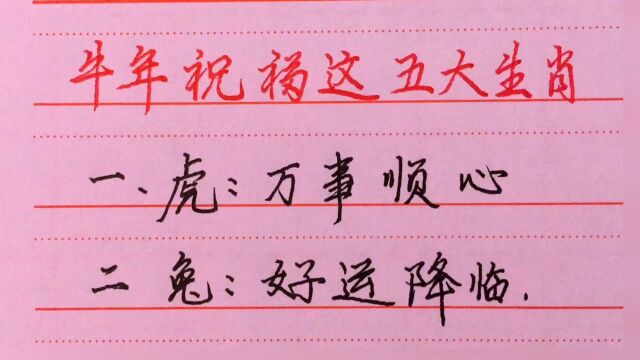 牛年祝福这五大生肖
一、虎：万事顺心
二 兔：好运降临.